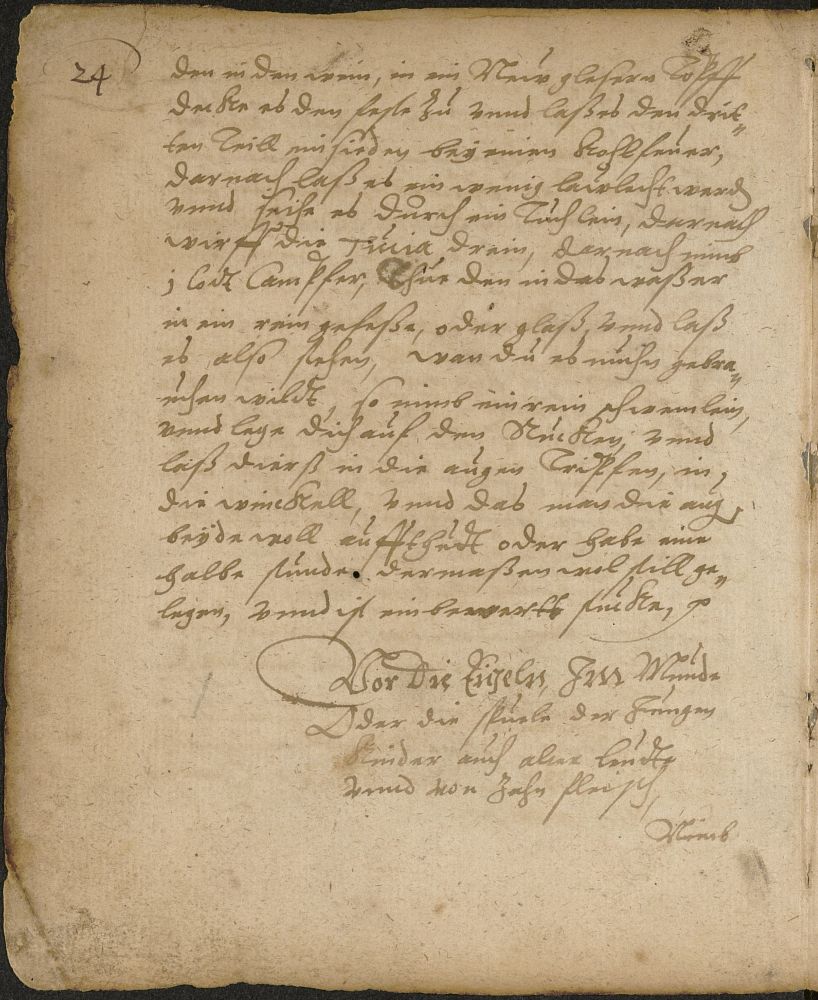 24
den in den wein, in ein Neuw gleseren Topff
decke es den feste zu vnnd laß es den drit„
ten Teill einsieden bey einen Kohlfeuer,
darnach laß es ein wenig lawlecht werd
vnnd seihe es durch ein Tüchlein, darnach
wirff die Tucia drein, darnach nimb
j lodt Campffer, thue den in das waßer
in ein rein gefeße, oder glaß, vnnd laß
es also stehen, wan du es nuhn gebra„
uchen wildt, so nimb ein rein schwemlein,
vnnd lege dich auf den Rücken vnnd
laß dierß in die augen Tripfen, in,
die winckell, vnnd das man die aug
beyde woll auffthudt oder habe eine
halbe stunde dermaßen wol still ge„
legen, vnnd ist ein bewerts stucke,
Vor Die Im Munde
Oder die spuele der Jungen
Kinder auch alter leudte
vnnd von Zahn fleisch,
Nimb